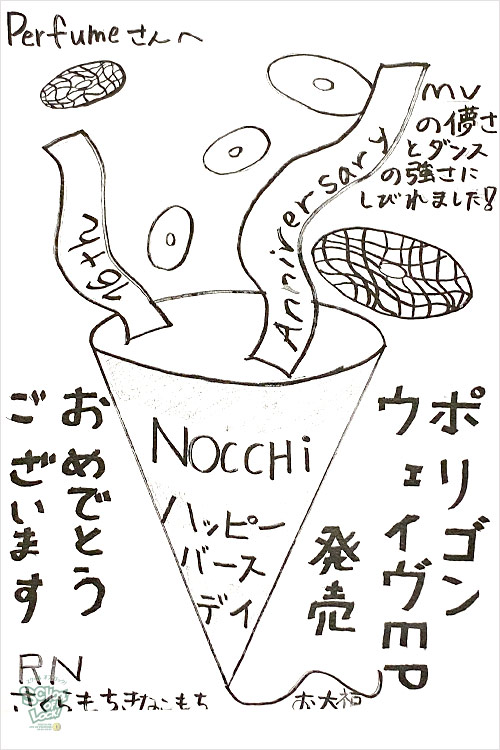 Perfumeさんへ
MV
の儚さ
とダンス
の強さに
しびれました!
16th
Anniversary
NOCCHi
ハッピー
バース
デイ
ポリゴン
ウェイヴEP
発売
おめでとう
ございます
RN
さくらもちきなこもち
お大福